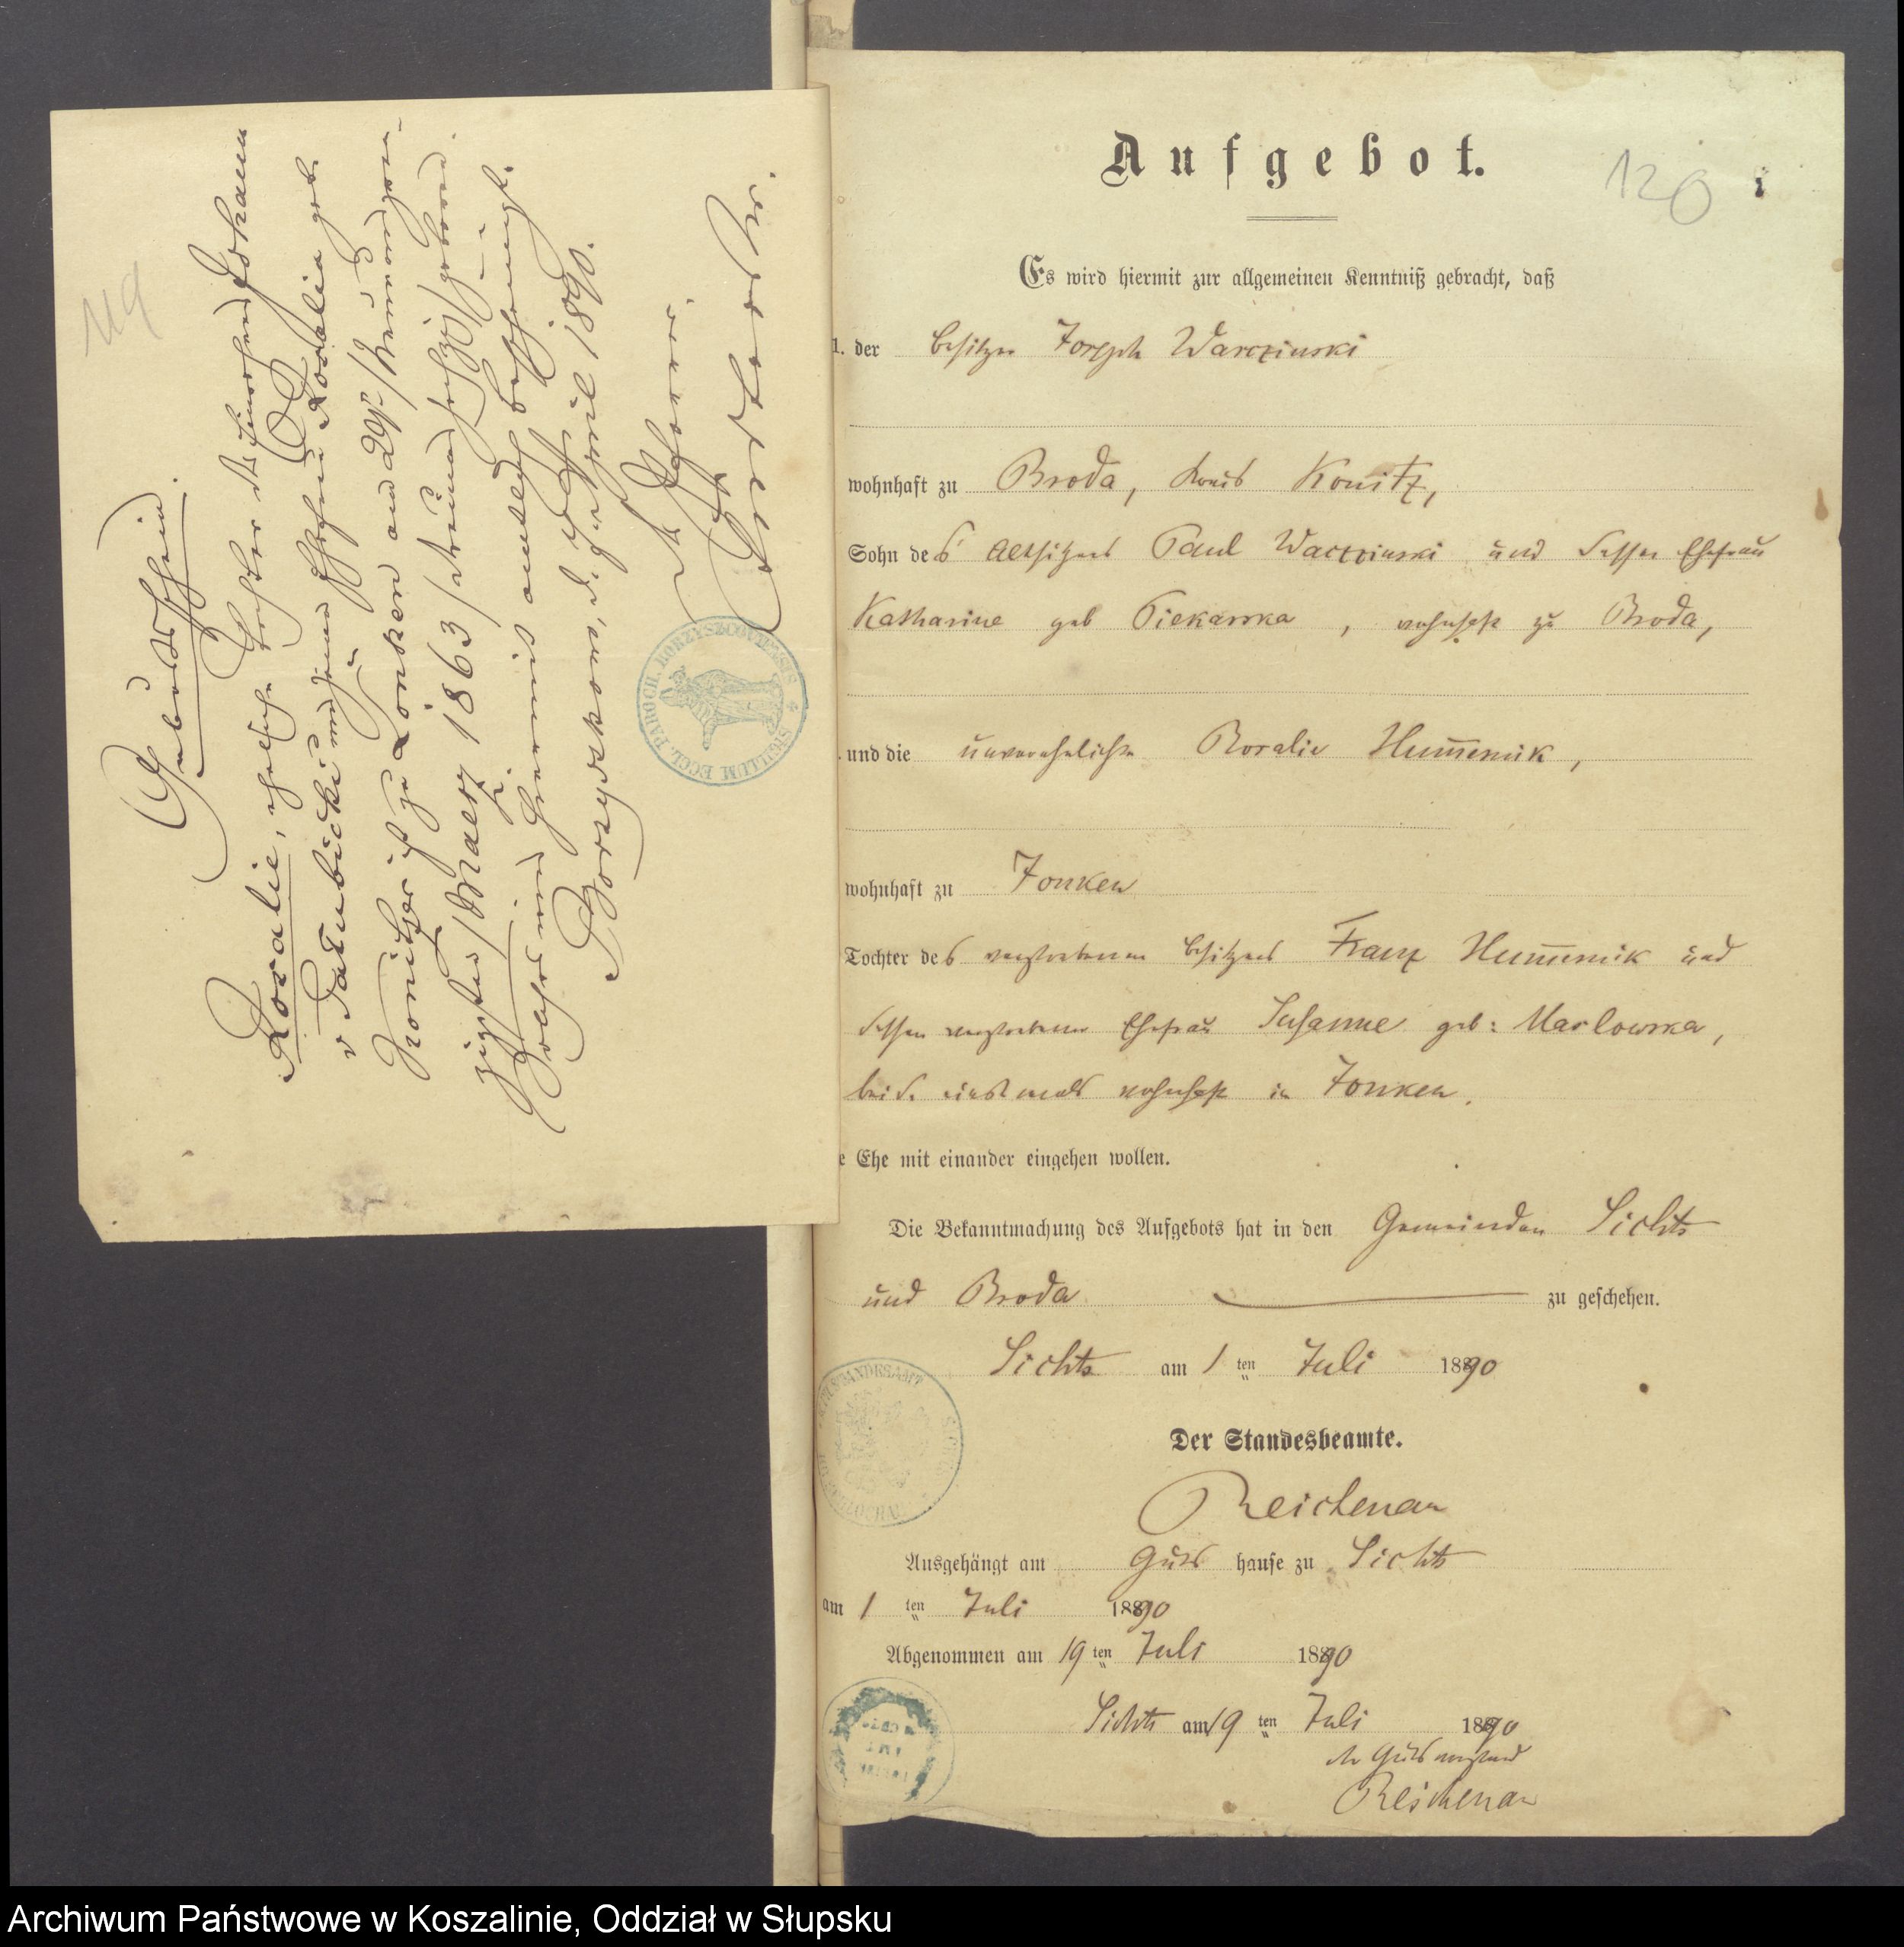 119
Geburtsschein.
Rosalie, eheliche Tochter des Einwohners Johann
v Patubicki und seiner Ehefrau Rosalia geb.
Konitzer ist zu Lonken am 29./neunundzwan-
zigsten/ Maerz 1863 /dreiundsechzig/ geboren.
was hiermit amtlich bescheinigt.
Borzyskowo, d. April 1890.
Pfarrer.
SIGILLUM ECCL. PAROCH. BORZYSZCOVIENSIS
Aufgebot.
120
Es wird hiermit zur allgemeinen Kenntniß gebracht, daß
1. der Besitzer Joseph Warczinski
wohnhaft zu Broda, Kreis Konitz,
Sohn des Altsitzers Paul Warczinski und dessen Ehefrau
Katharine geb Piekarska, wohnhaft zu Broda,
und die unverehelichte Rosalie Hum̅enik,
wohnhaft zu Jonken
Tochter des verstorbenen Besitzers Franz Hum̅enik und
dessen verstorbenen Ehefrau Susanne geb: Marlowska,
beide wohnhaft in Jonken.
e Ehe mit einander eingehen wollen.
Die Bekanntmachung des Aufgebots hat in den Gemeinden Sichts
und Broda zu geschehen.
Sichts am 1 ten Juli 1890
STANDESAMT
Der Standesbeamte.
Reichenau
Ausgehängt am Guts hause zu Sichts
am 1 ten Juli 1890
Abgenommen am 19 ten Juli 1890
Sichts am 19 ten Juli 1890
der Gutsvorstand
Reichenau
Archiwum Państwowe w Koszalinie, Oddział w Słupsku